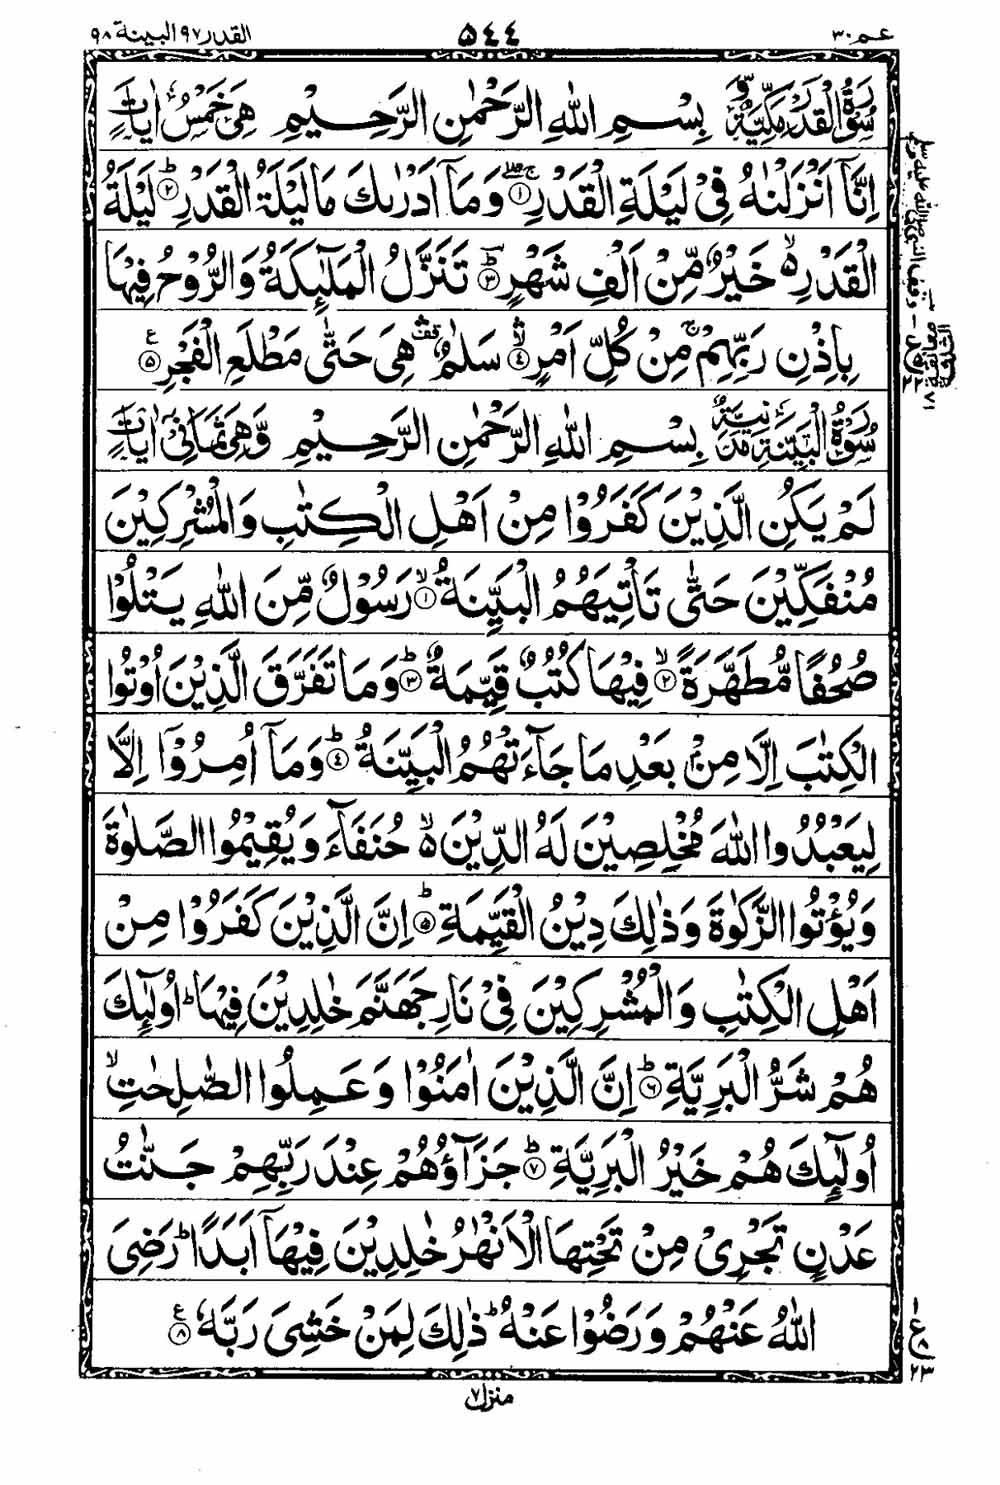 عم ٣٠
۵۴۴
القدر ٩٧ البينة ٩٨
سُوْرَةُ الْقَدْرِ مَكِّيَّةٌ وَّ بِسْمِ اللهِ الرَّحْمٰنِ الرَّحِيْمِ هِيَ خَمْسُ اٰيَاتٍ
اِنَّاۤ اَنْزَلْنٰهُ فِيْ لَيْلَةِ الْقَدْرِ ۚۖ ۝١ وَمَاۤ اَدْرٰىكَ مَا لَيْلَةُ الْقَدْرِ ؕ ۝٢ لَيْلَةُ
الْقَدْرِ ۙ۬ خَيْرٌ مِّنْ اَلْفِ شَهْرٍ ؕؔ ۝٣ تَنَزَّلُ الْمَلٰٓىِٕكَةُ وَالرُّوْحُ فِيْهَا
بِاِذْنِ رَبِّهِمْ ۚ مِنْ كُلِّ اَمْرٍ ۙۛ ۝٤ سَلٰمٌ ۛ۫ هِيَ حَتّٰى مَطْلَعِ الْفَجْرِ ۝٥ ع
سُوْرَةُ الْبَيِّنَةِ مَدَنِيَّةٌ بِسْمِ اللهِ الرَّحْمٰنِ الرَّحِيْمِ وَّهِيَ ثَمَانِيْ اٰيَاتٍ
لَمْ يَكُنِ الَّذِيْنَ كَفَرُوْا مِنْ اَهْلِ الْكِتٰبِ وَالْمُشْرِكِيْنَ
مُنْفَكِّيْنَ حَتّٰى تَاْتِيَهُمُ الْبَيِّنَةُ ۙ ۝١ رَسُوْلٌ مِّنَ اللهِ يَتْلُوْا
صُحُفًا مُّطَهَّرَةً ۙ ۝٢ فِيْهَا كُتُبٌ قَيِّمَةٌ ؕ ۝٣ وَمَا تَفَرَّقَ الَّذِيْنَ اُوْتُوا
الْكِتٰبَ اِلَّا مِنْۢ بَعْدِ مَا جَآءَتْهُمُ الْبَيِّنَةُ ؕ ۝٤ وَمَاۤ اُمِرُوْۤا اِلَّا
لِيَعْبُدُوا اللهَ مُخْلِصِيْنَ لَهُ الدِّيْنَ ۙ۬ حُنَفَآءَ وَيُقِيْمُوا الصَّلٰوةَ
وَيُؤْتُوا الزَّكٰوةَ وَذٰلِكَ دِيْنُ الْقَيِّمَةِ ؕ ۝٥ اِنَّ الَّذِيْنَ كَفَرُوْا مِنْ
اَهْلِ الْكِتٰبِ وَالْمُشْرِكِيْنَ فِيْ نَارِ جَهَنَّمَ خٰلِدِيْنَ فِيْهَا ؕ اُولٰٓىِٕكَ
هُمْ شَرُّ الْبَرِيَّةِ ؕ ۝٦ اِنَّ الَّذِيْنَ اٰمَنُوْا وَعَمِلُوا الصّٰلِحٰتِ ۙ
اُولٰٓىِٕكَ هُمْ خَيْرُ الْبَرِيَّةِ ؕ ۝٧ جَزَآؤُهُمْ عِنْدَ رَبِّهِمْ جَنّٰتُ
عَدْنٍ تَجْرِيْ مِنْ تَحْتِهَا الْاَنْهٰرُ خٰلِدِيْنَ فِيْهَاۤ اَبَدًا ؕ رَضِيَ
اللهُ عَنْهُمْ وَرَضُوْا عَنْهُ ؕ ذٰلِكَ لِمَنْ خَشِيَ رَبَّهٗ ۝٨ ع
منزل ٧